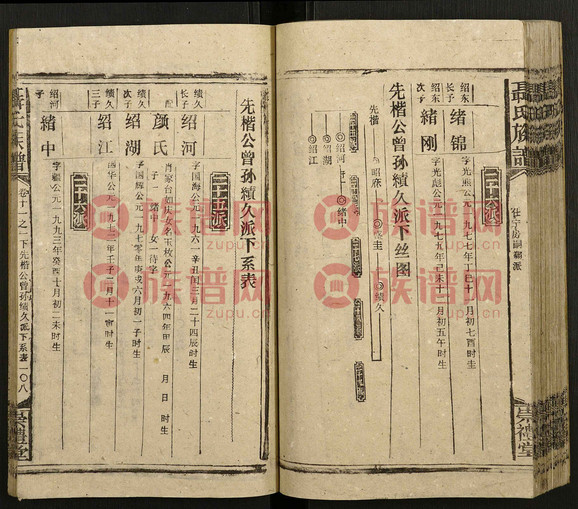 聶氏族譜
崇禮堂
二十六派
绍东
长子
绪锦
字光熊公元一九七七年丁巳七月初七酉时生
绍东
次子
绪刚
字光彪公元一九七五年己未十月初五午时生
先楷公曾孙续久派下丝图
先楷
昭庥
圭
续久
绍河
绪中
绍湖
绍江
先楷公曾孙續久派下系表
二十五派
续久
长子
绍河
字国海公元一九六一辛丑
二十四辰时生
配
颜氏
肖家台
女名玉枚公元一九六四年甲辰 月 日 时生
子一 绪中 女一待字
续久
次子
绍湖
字国
公元一九七〇年庚戌六月初二子时生
续久
三子
绍江
公元一九七二年壬子二月十一寅时生
二十六派
绍河
子
緒中
字疆公元一九九三年癸酉十月初二未时生
聶氏族譜
卷十一之一下先楷公曾孙续久派下系表一〇八
崇禮堂
族谱网
zupu.cn
族谱网
zupu.cn